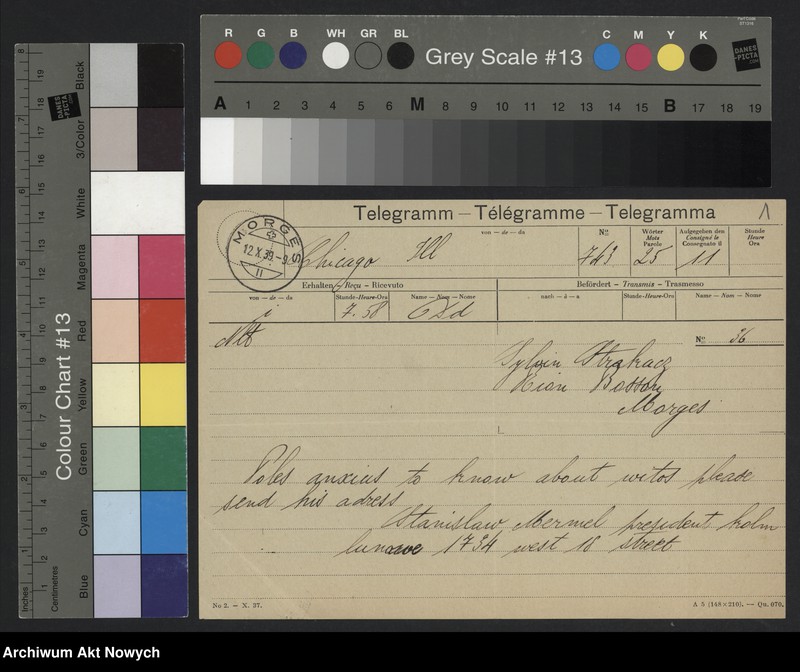 R G B WH GR BL Grey Scale #13 C M Y K
DANES
-PICTA
A 1 2 3 4 5 6 M 8 9 10 11 12 13 14 15 B 17 18 19
Colour Chart #13
Black
3/Color
White
Magenta
Red
Yellow
Green
Cyan
Blue
Inches
Centimetres
Telegramm — Télégramme — Telegramma 1
MORGES
12.X.39.-9
11
von — de — da
Chicago Ill
No
743
Wörter
Mots
Parole
25
Aufgegeben den
Consigné le
Consegnato il
11
Stunde
Heure
Ora
Erhalten — Reçu — Ricevuto
Befördert — Transmis — Trasmesso
von — de — da
Stunde-Heure-Ora
7.58
Name — Nom — Nome
nach — à — a
Stunde-Heure-Ora
Name — Nom — Nome
Nlt
No 36
Sylvin Strakacz
Rion Bosson
Morges
Poles anxius to know about witos please
send his adress
Stanislaw Mermel president kolm
1734 west 18 street
No 2. — X. 37.
A 5 (148×210). — Qu. 070.
Archiwum Akt Nowych